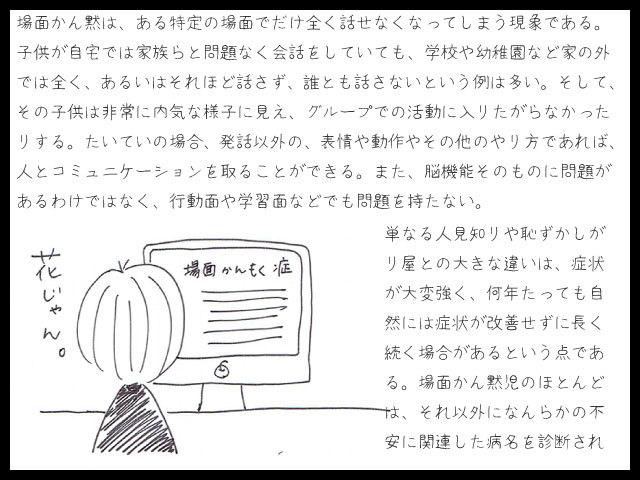 場面かん黙は、ある特定の場面でだけ全く話せなくなってしまう現象である。
子供が自宅では家族らと問題なく会話をしていても、学校や幼稚園など家の外
では全く、あるいはそれほど話さず、誰とも話さないという例は多い。そして、
その子供は非常に内気な様子に見え、グループでの活動に入りたがらなかった
りする。たいていの場合、発話以外の、表情や動作やその他のやり方であれば、
人とコミュニケーションを取ることができる。また、脳機能そのものに問題が
あるわけではなく、行動面や学習面などでも問題を持たない。
単なる人見知りや恥ずかしが
り屋との大きな違いは、症状
が大変強く、何年たっても自
然には症状が改善せずに長く
続く場合があるという点であ
る。場面かん黙児のほとんど
は、それ以外になんらかの不
安に関連した病名を診断され
場面かんもく症
花じゃん。